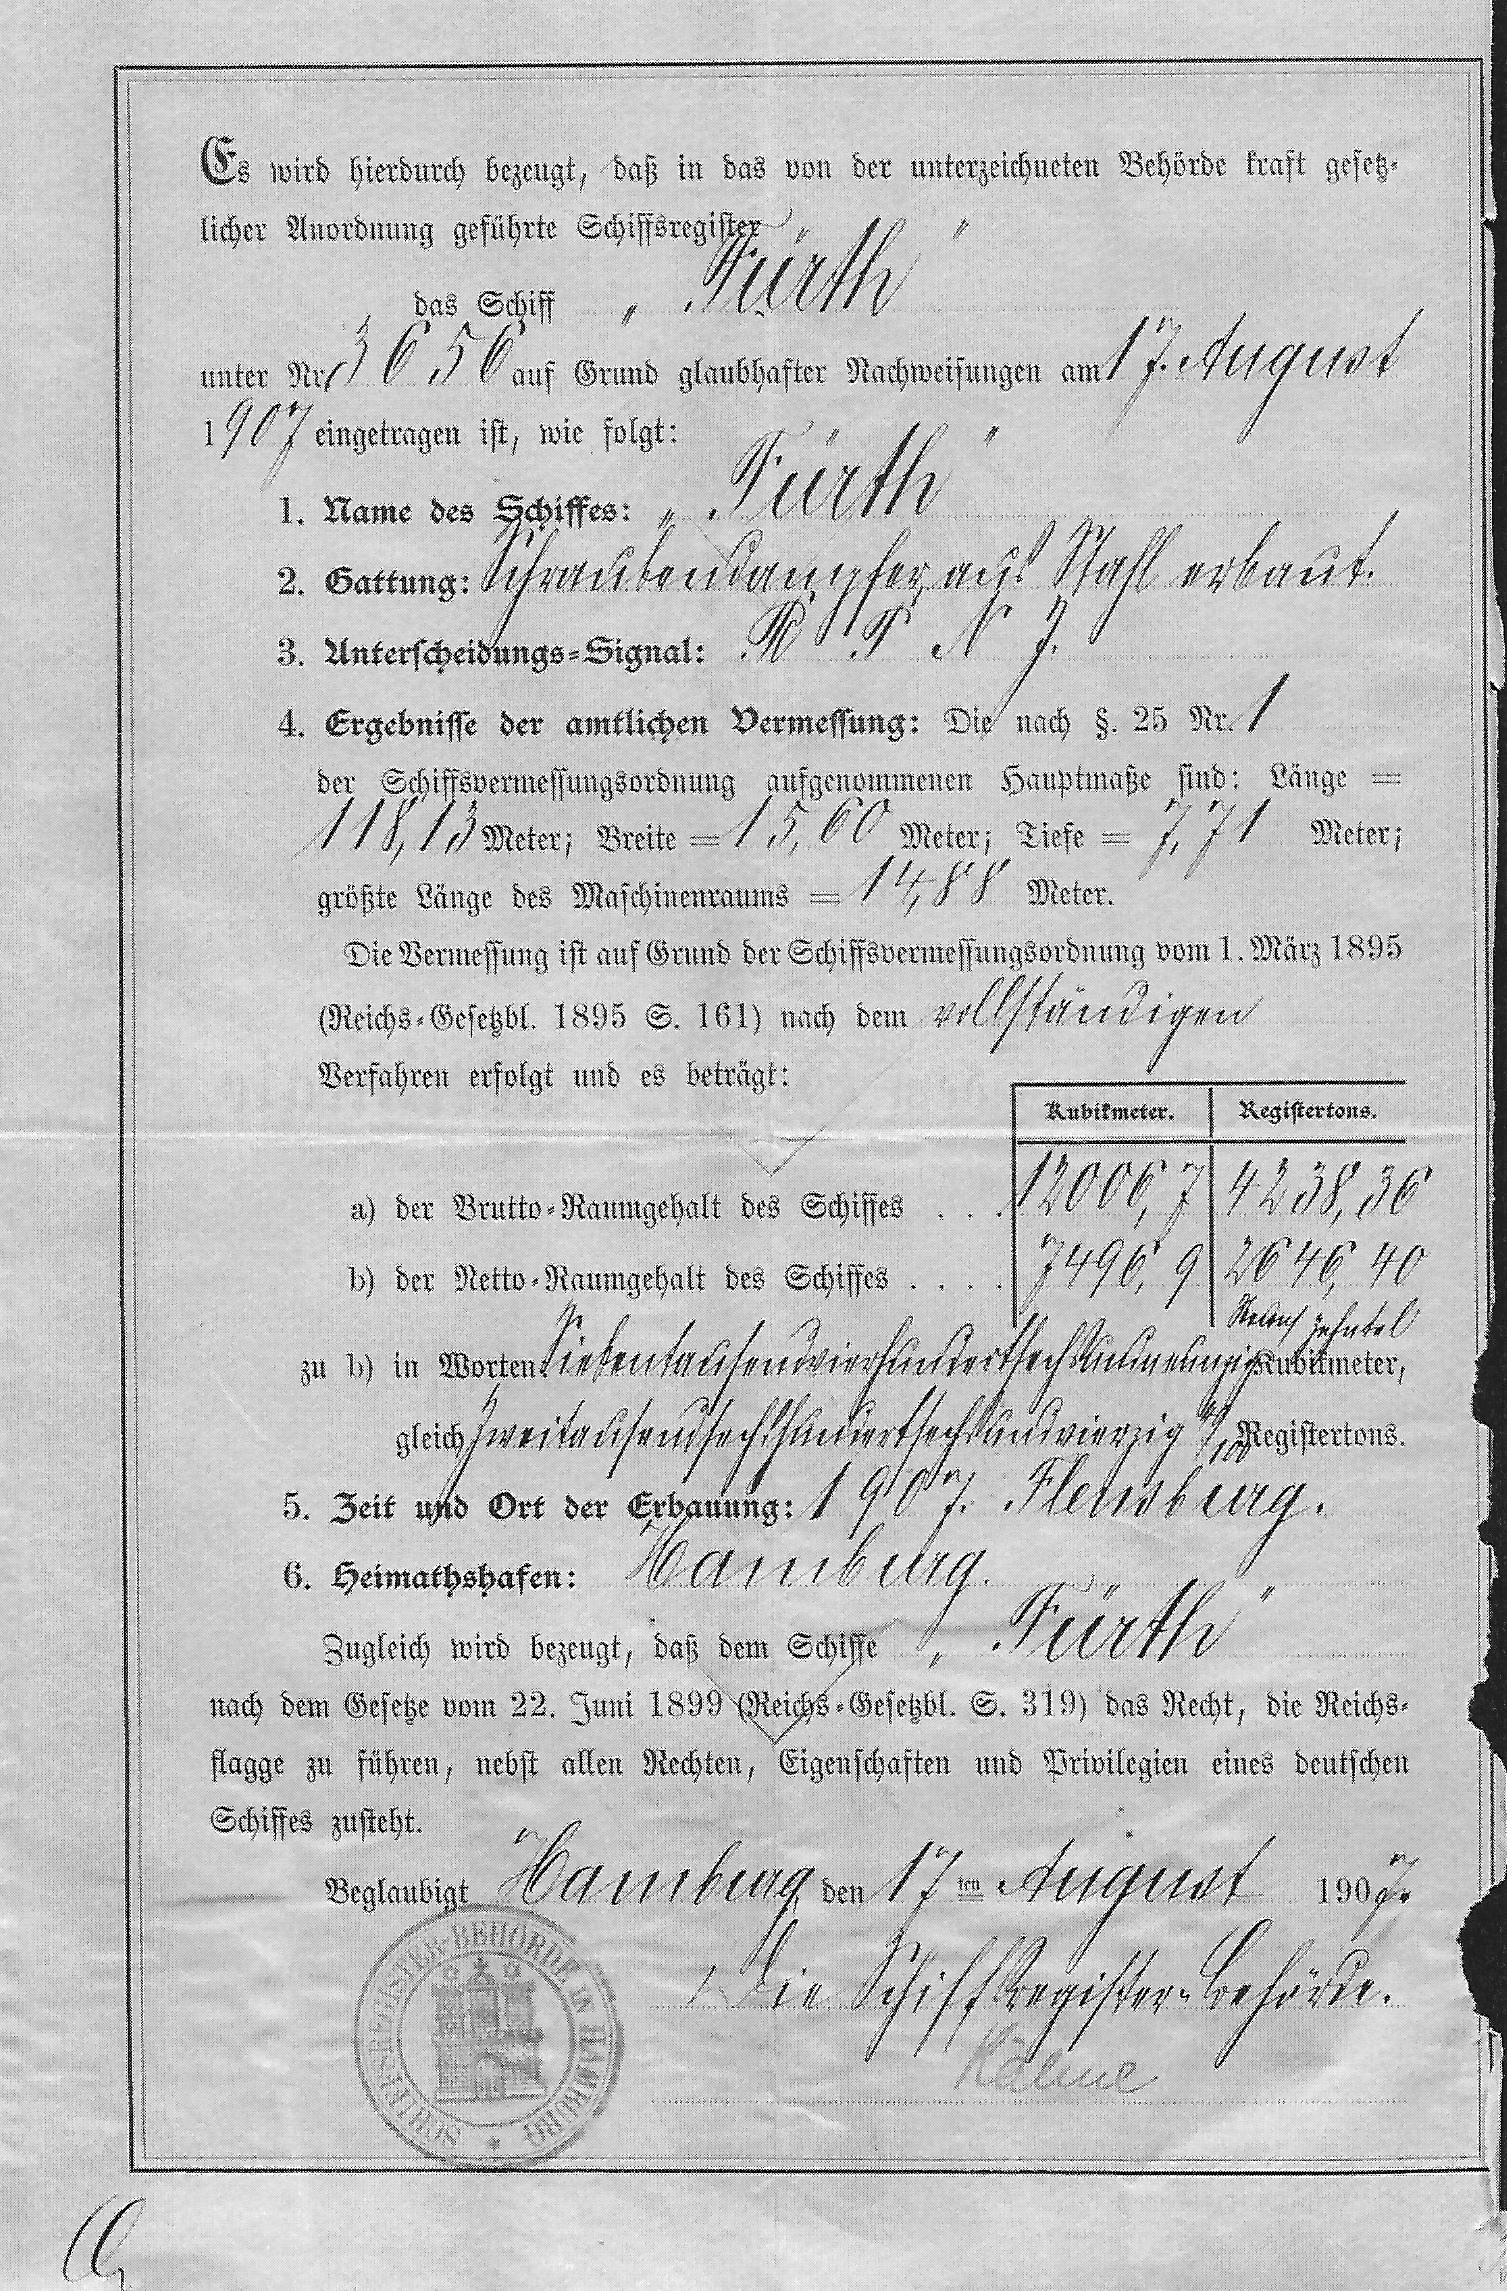 Es wird hierdurch bezeugt, daß in das von der unterzeichneten Behörde kraft gesetz-
licher Anordnung geführte Schiffsregister
das Schiff „Fürth“
unter Nr. 3656 auf Grund glaubhafter Nachweisungen am 17. August
1907 eingetragen ist, wie folgt:
1. Name des Schiffes: „Fürth“
2. Gattung: Schraubendampfer, aus Stahl erbaut.
3. Unterscheidungs-Signal: R T N J.
4. Ergebnisse der amtlichen Vermessung: Die nach §. 25 Nr. 1
der Schiffsvermessungsordnung aufgenommenen Hauptmaße sind: Länge =
118,13 Meter; Breite = 15,60 Meter; Tiefe = 7,71 Meter;
größte Länge des Maschinenraums = 14,88 Meter.
Die Vermessung ist auf Grund der Schiffsvermessungsordnung vom 1. März 1895
(Reichs-Gesetzbl. 1895 S. 161) nach dem vollständigen
Verfahren erfolgt und es beträgt:
Kubikmeter. Registertons.
a) der Brutto-Raumgehalt des Schiffes . . . 12006,7 4238,36
b) der Netto-Raumgehalt des Schiffes . . . . 7496,9 2646,40
neun zehntel
zu b) in Worten: Siebentausendvierhundertsechsundneunzig Kubikmeter,
gleich Zweitausendsechshundertsechsundvierzig 40/100 Registertons.
5. Zeit und Ort der Erbauung: 1907. Flensburg.
6. Heimathshafen: Hamburg.
Zugleich wird bezeugt, daß dem Schiffe „Fürth“
nach dem Gesetze vom 22. Juni 1899 (Reichs-Gesetzbl. S. 319) das Recht, die Reichs-
flagge zu führen, nebst allen Rechten, Eigenschaften und Privilegien eines deutschen
Schiffes zusteht.
Beglaubigt Hamburg, den 17ten August 1907.
Die Schiffsregister-Behörde.
SCHIFFSREGISTER-BEHÖRDE IN HAMBURG